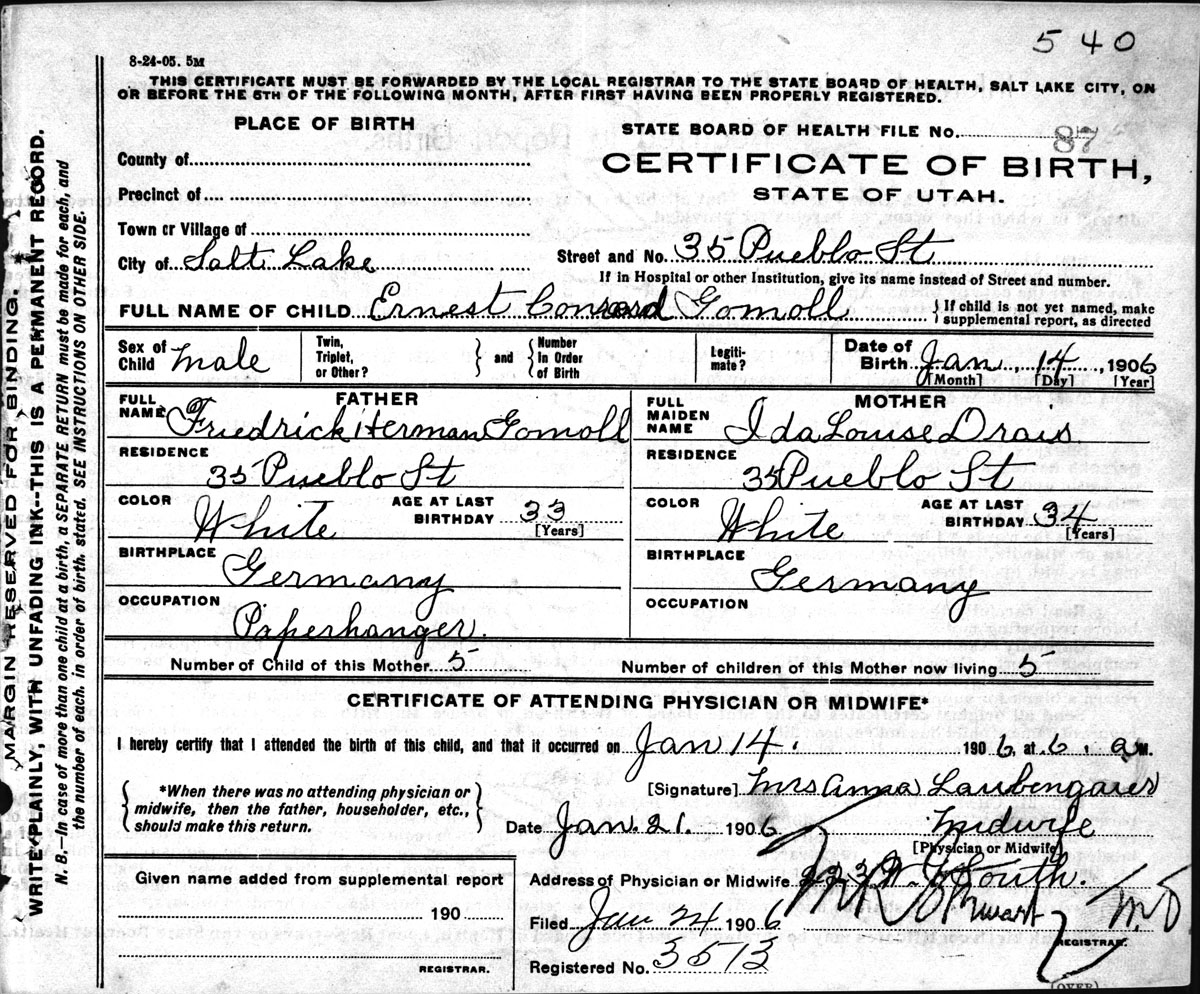 540
8-24-05. 5M
THIS CERTIFICATE MUST BE FORWARDED BY THE LOCAL REGISTRAR TO THE STATE BOARD OF HEALTH, SALT LAKE CITY, ON
OR BEFORE THE 5TH OF THE FOLLOWING MONTH, AFTER FIRST HAVING BEEN PROPERLY REGISTERED.
PLACE OF BIRTH
STATE BOARD OF HEALTH FILE No. 87
County of
CERTIFICATE OF BIRTH,
Precinct of
STATE OF UTAH.
Town or Village of
City of Salt Lake Street and No. 35 Pueblo St
If in Hospital or other Institution, give its name instead of Street and number.
FULL NAME OF CHILD Ernest Conrad Gomoll {If child is not yet named, make supplemental report, as directed
Sex of Child Male Twin, Triplet, or Other? } and { Number In Order of Birth Legiti-mate? Date of Birth Jan, 14, 1906
[Month] [Day] [Year]
FATHER MOTHER
FULL NAME Friedrick Herman Gomoll FULL MAIDEN NAME Ida Louise Drais
RESIDENCE RESIDENCE
35 Pueblo St 35 Pueblo St
COLOR White AGE AT LAST BIRTHDAY 33 [Years] COLOR White AGE AT LAST BIRTHDAY 34 [Years]
BIRTHPLACE Germany BIRTHPLACE Germany
OCCUPATION Paperhanger. OCCUPATION
Number of Child of this Mother 5 Number of children of this Mother now living 5
CERTIFICATE OF ATTENDING PHYSICIAN OR MIDWIFE*
I hereby certify that I attended the birth of this child, and that it occurred on Jan 14. 1906, at 6. a M.
[Signature] Mrs Anna Laubengaier
{ *When there was no attending physician or midwife, then the father, householder, etc., should make this return. }
Date Jan. 21. 1906 Midwife
[Physician or Midwife]
Given name added from supplemental report
Address of Physician or Midwife South.
190
Filed Jan 24 1906 M.D
REGISTRAR.
REGISTRAR.
Registered No. 3513
(OVER)
MARGIN RESERVED FOR BINDING.
WRITE PLAINLY, WITH UNFADING INK--THIS IS A PERMANENT RECORD.
N. B.—In case of more than one child at a birth, a SEPARATE RETURN must be made for each, and
the number of each, in order of birth, stated. SEE INSTRUCTIONS ON OTHER SIDE.